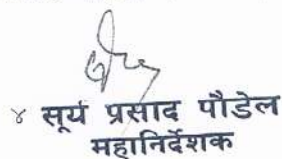 सूर्य प्रसाद पौडेल
महानिर्देशक